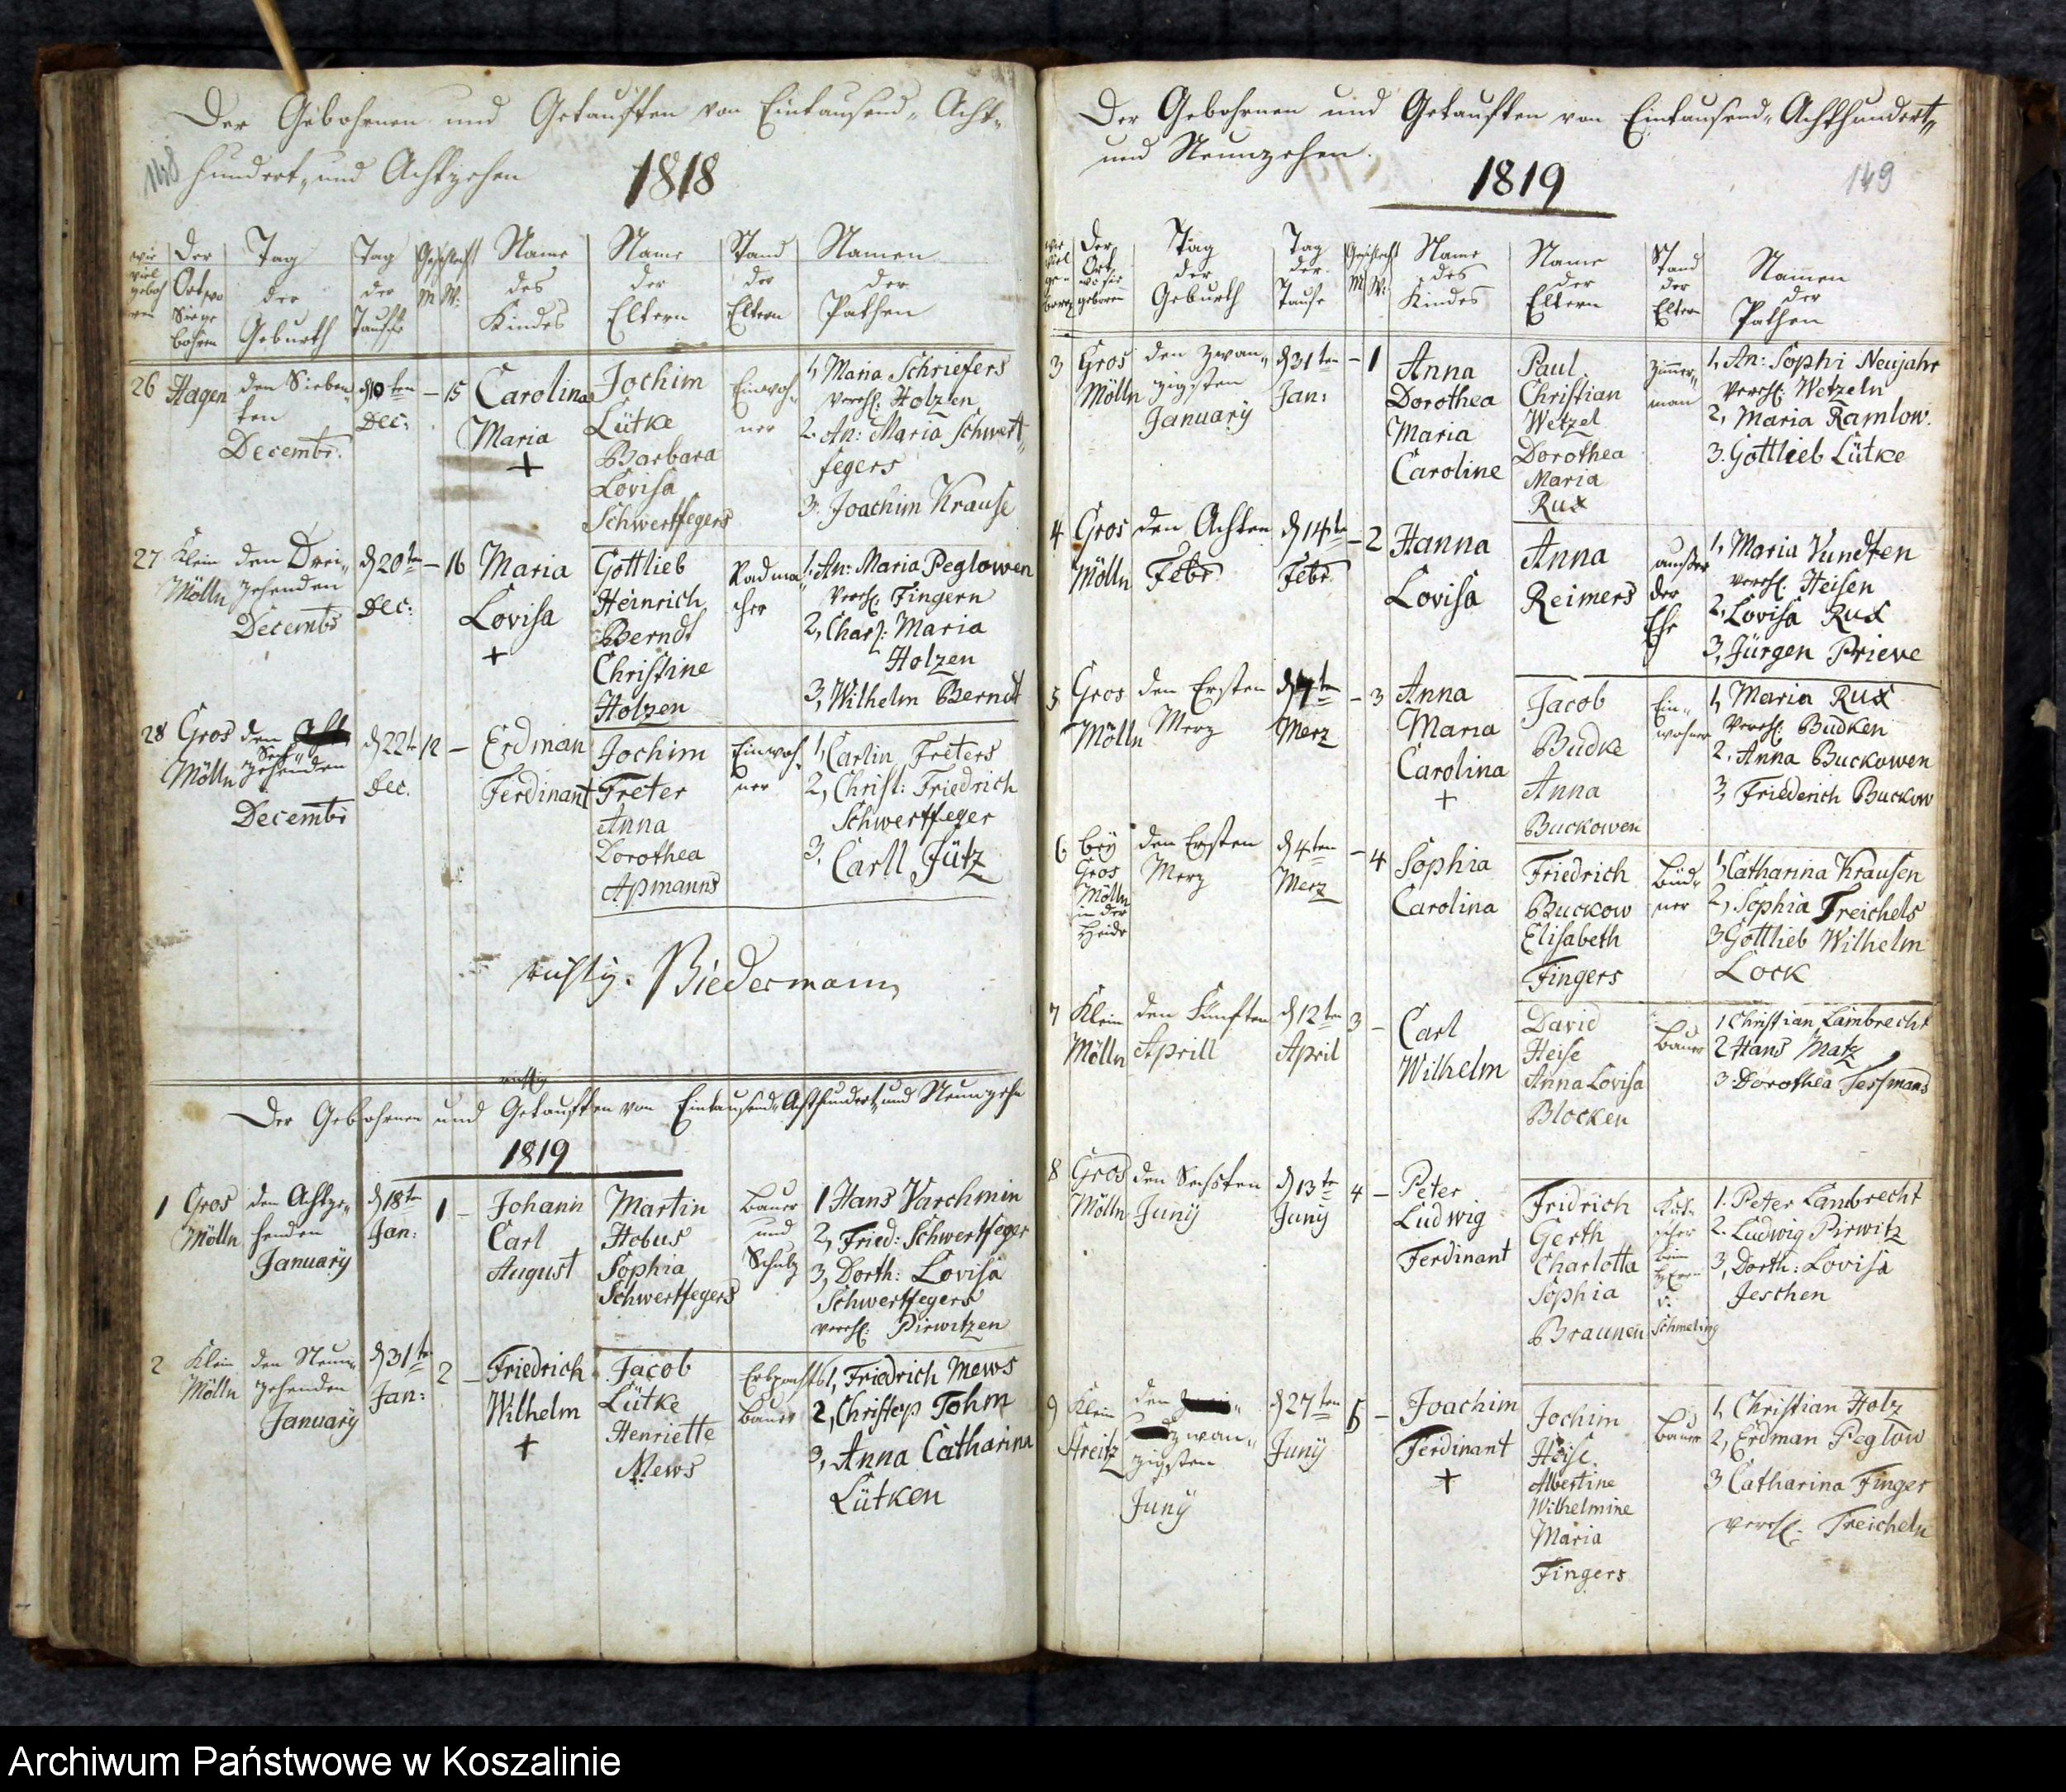 Der Gebohrnen und Getauften von Eintausend, Acht-
148 hundert, und Achtzehen 1818
wie viel geboh ren
Der Ort, wo Sie ge bohren
Tag der Geburth
Tag der Tauffe
Geschlecht M W:
Name des Kindes
Name der Eltern
Stand der Eltern
Namen der Pathen
26 Hagen
den Sieben-
ten
Decembr.
d 10ten
Dec:
– 15
Carolina
Maria
+
Jochim
Lütke
Barbara
Lovisa
Schwertfegers
Einwoh-
ner
1, Maria Schriefers
verehl: Holzen
2. An: Maria Schwert-
fegers
3. Joachim Krause
27 Klein
Mölln
den Drei-
zehenden
Decembr
d 20ten
Dec:
– 16
Maria
Lovisa
+
Gottlieb
Heinrich
Berndt
Christine
Holzen
Radma
cher
1, An: Maria Peglowen
verehl: Fingern
2, Charl: Maria
Holzen
3, Wilhelm Berndt
28 Gros
Mölln
den
Sech-
zehenden
Decembr
d 22te
Dec.
12 –
Erdman
Ferdinant
Jochim
Treter
Anna
Dorothea
Apmanns
Einwoh-
ner
1, Carlin Treters
2, Christ: Friedrich
Schwertfeger
3. Carll Jütz
richtig. Biedermann
richtig
Der Gebohrnen und Getauften von Eintausend, Achthundert, und Neunzehn
1819
1 Gros
Mölln
den Achtze-
henden
January
d 18te
Jan:
1 –
Johann
Carl
August
Martin
Hobus
Sophia
Schwertfegers
Bauer
und
Schulz
1 Hans Varchmin
2, Fried: Schwertfeger
3, Dorth: Lovisa
Schwertfegers
verehl: Pirwitzen
2 Klein
Mölln
den Neun-
zehenden
January
d 31te
Jan:
2 –
Friedrich
Wilhelm
+
Jacob
Lütke
Henriette
Mews
Erbpacht
Bauer
1, Friedrich Mews
2, Christop Tohm
3, Anna Catharina
Lütken
Der Gebohrnen und Getauften von Eintausend, Achthundert,
und Neunzehen.
1819
149
wie viel ge- boren
Der Ort wo sie geboren
Tag der Geburth
Tag der Taufe
Geschlecht M W:
Name des Kindes
Name der Eltern
Stand der Eltern
Namen der Pathen
3 Gros
Mölln
den Zwan-
zigsten
January
d 31ten
Jan:
– 1
Anna
Dorothea
Maria
Caroline
Paul
Christian
Wetzel
Dorothea
Maria
Rux
Zimmer-
man
1, An: Sophi Neujahr
verehl: Wetzeln
2, Maria Ramlow.
3. Gottlieb Lütke
4 Gros
Mölln
den Achten
Febr
d 14te
Febr.
– 2
Hanna
Lovisa
Anna
Reimers
ausser
der
Ehe
1, Maria Vundten
verehl: Heisen
2, Lovisa Rux
3, Jürgen Prieve
5 Gros
Mölln
den Ersten
Merz
d 7te
Merz
– 3
Anna
Maria
Carolina
+
Jacob
Budke
Anna
Buckowen
Ein-
wohner
1, Maria Rux
verehl: Budken
2, Anna Buckowen
3, Friederich Buckow
6 bey
Gros
Mölln
in der
Heide
den Ersten
Merz
d 4ten
Merz
– 4
Sophia
Carolina
Friedrich
Buckow
Elisabeth
Fingers
Büd-
ner
1, Catharina Krausen
2, Sophia Treichels
3 Gottlieb Wilhelm
Lock
7 Klein
Mölln
den Fünften
Aprill
d 12ten
April
3 –
Carl
Wilhelm
David
Heise
Anna Lovisa
Blocken
Bauer
1 Christian Lambrecht
2 Hans Matz
3 Dorothea Tessmans
8 Gros
Mölln
den Sechsten
Juny
d 13te
Juny
4 –
Peter
Ludwig
Ferdinant
Fridrich
Gerth
Charlotta
Sophia
Braunen
Kut-
scher
beim
Herrn
v.
Schmeling
1. Peter Lambrecht
2. Ludwig Pirwitz
3, Dorth: Lovisa
Jeschen
9 Klein
Streitz
den
zwan-
zigsten
Juny
d 27ten
Juny
5 –
Joachim
Ferdinant
+
Jochim
Heise
Albertine
Wilhelmine
Maria
Fingers
Bauer
1, Christian Holz
2, Erdman Peglow
3 Catharina Finger
verehl: Treicheln
Archiwum Państwowe w Koszalinie